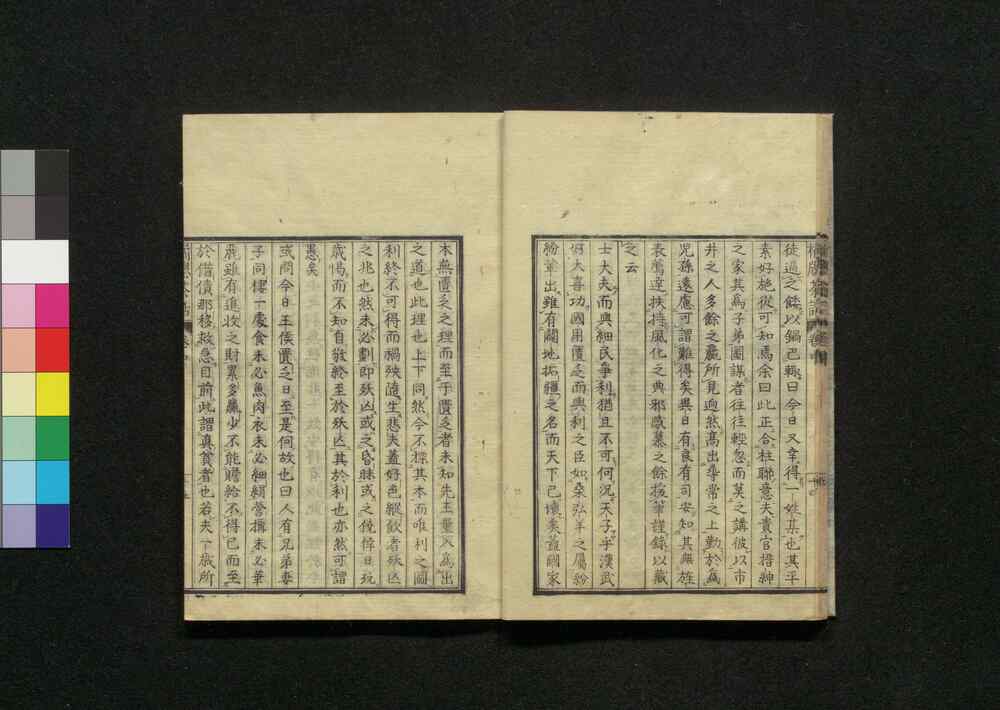 徒過之餘以鍋已輟日今日又幸得一姓某也其平
素好施從可知焉余曰此正合杜聯意夫貴官搢紳
之家其為子弟圖謀者往往輕忽而莫之講彼以市
井之人多餘之贏所見逈然高出尋常之上勤於為
児孫遠慮可謂難得矣異日有良有司安知其無旌
表鴈逹扶持風化之典邪感慕之餘援筆謹錄以蔵
之云
士大夫而與細民爭利猶且不可何況天子乎漢武
好大喜功國用匱乏而興利之臣如桑弘羊之屬紛
紛輩出雖有闢地拓疆之名而天下已壊矣蓋國家
本無匱乏之理而至于匱乏者未知先王量入為出
之道也此理也上下同然今不揣其本而唯利之圖
利終不可得而禍殃隨生悲夫蓋好色縱飲者殀凶
之兆也然未必劃即殀凶或之昏昧或之僥倖日玩
歳愒而不知自敬終至於殀凶其於利也亦然可謂
愚矣
或問今日王侯匱乏日至是何故也曰人有兄弟妻
子同棲一處食未必魚肉衣未必細絹營構未必華
麗雖有進收之財累多贏少不能贍給不得已而至
於借債那移救急目前此謂真貧者也若夫一歳所